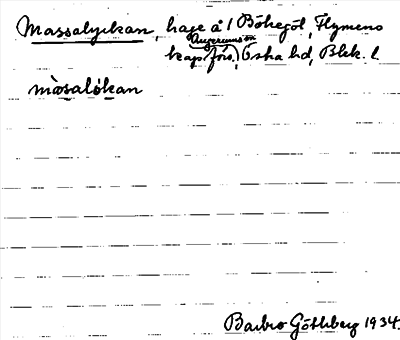 Massalyckan, hage å 1 Bökegöl, Flymens
Augerums sn
kap förs., Östra hd, Blek. l.
mòsalókan
Barbro Göthberg 1934.